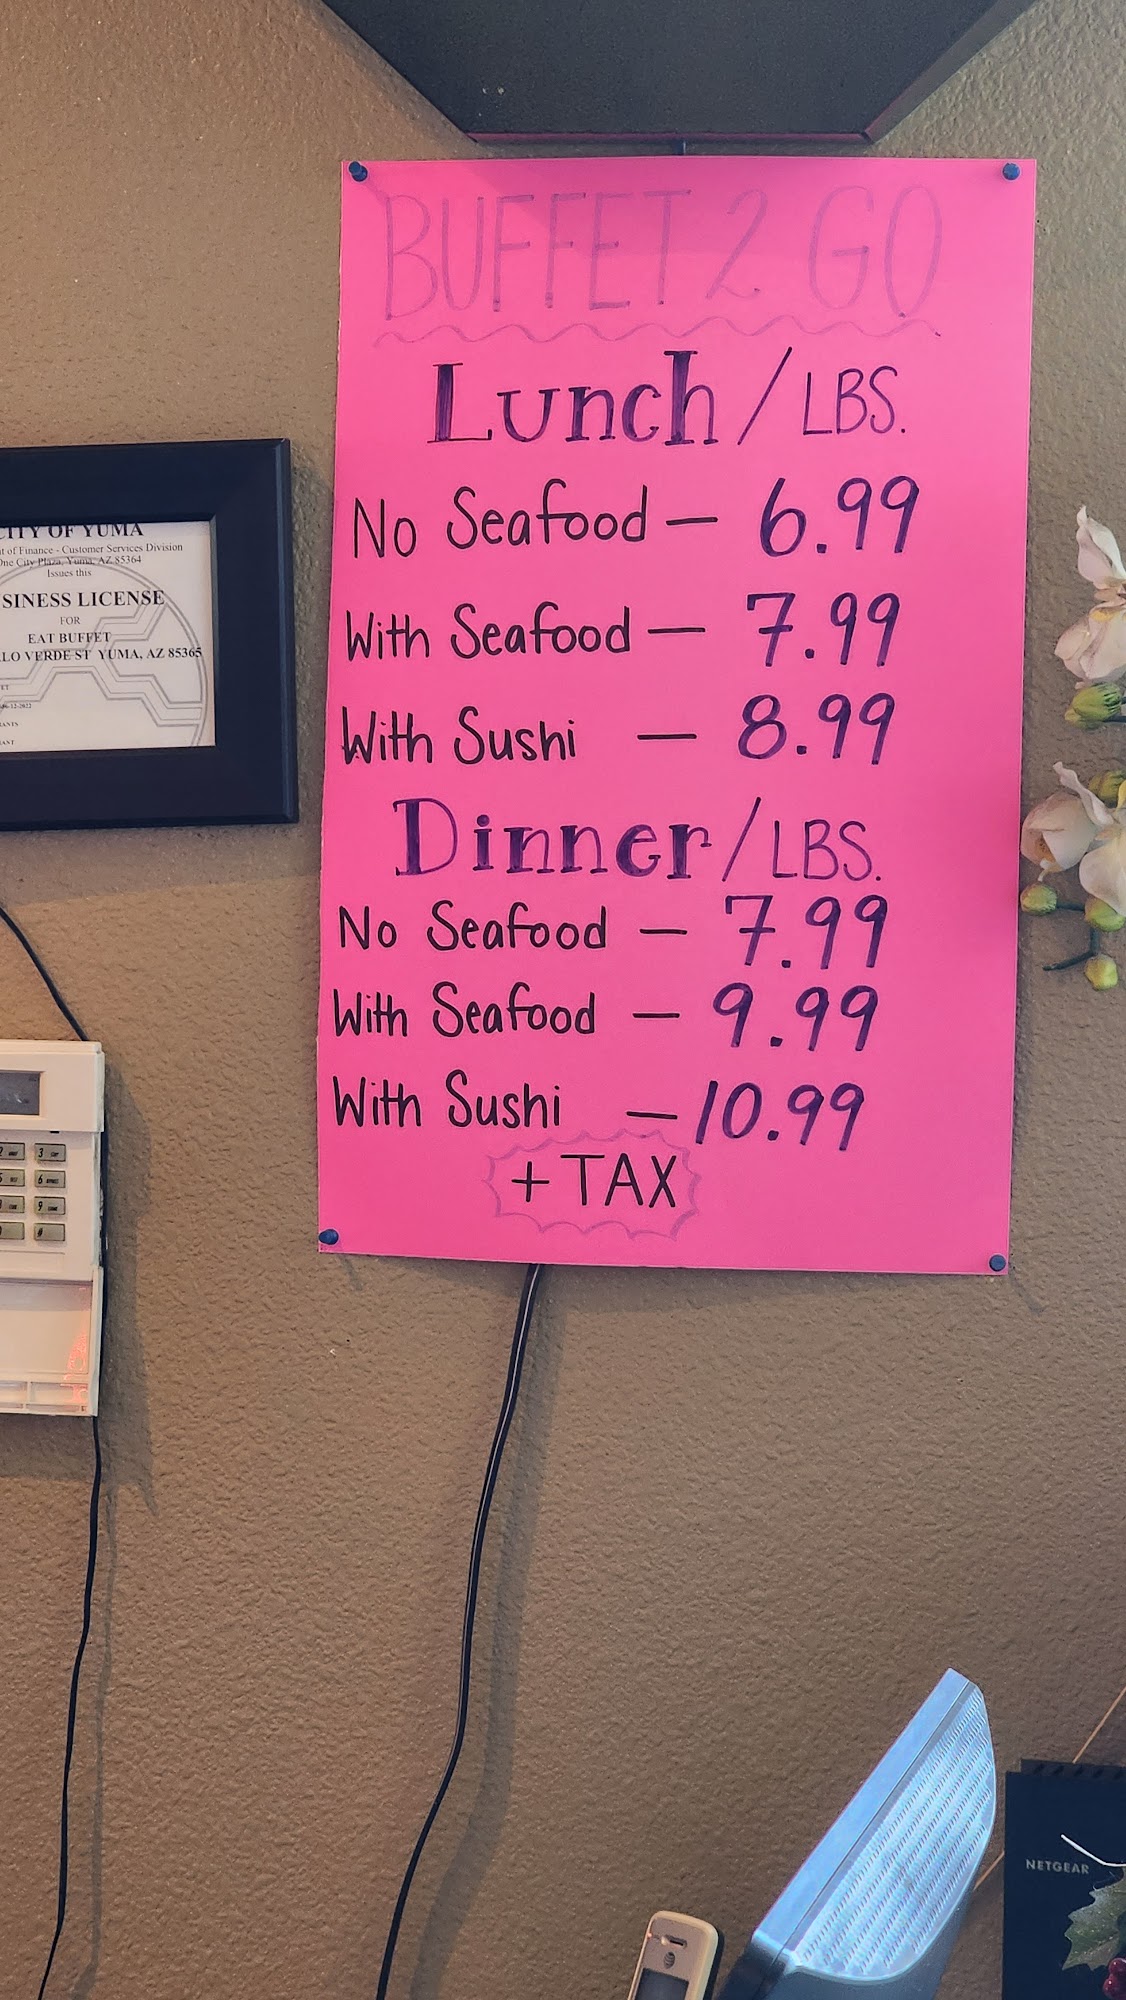 BUFFET 2 GO
Lunch / LBS.
No Seafood — 6.99
With Seafood — 7.99
With Sushi — 8.99
Dinner / LBS.
No Seafood — 7.99
With Seafood — 9.99
With Sushi — 10.99
+ TAX
CITY OF YUMA
of Finance - Customer Services Division
One City Plaza, Yuma, AZ 85364
Issues this
SINESS LICENSE
FOR
EAT BUFFET
LO VERDE ST YUMA, AZ 85365
NETGEAR